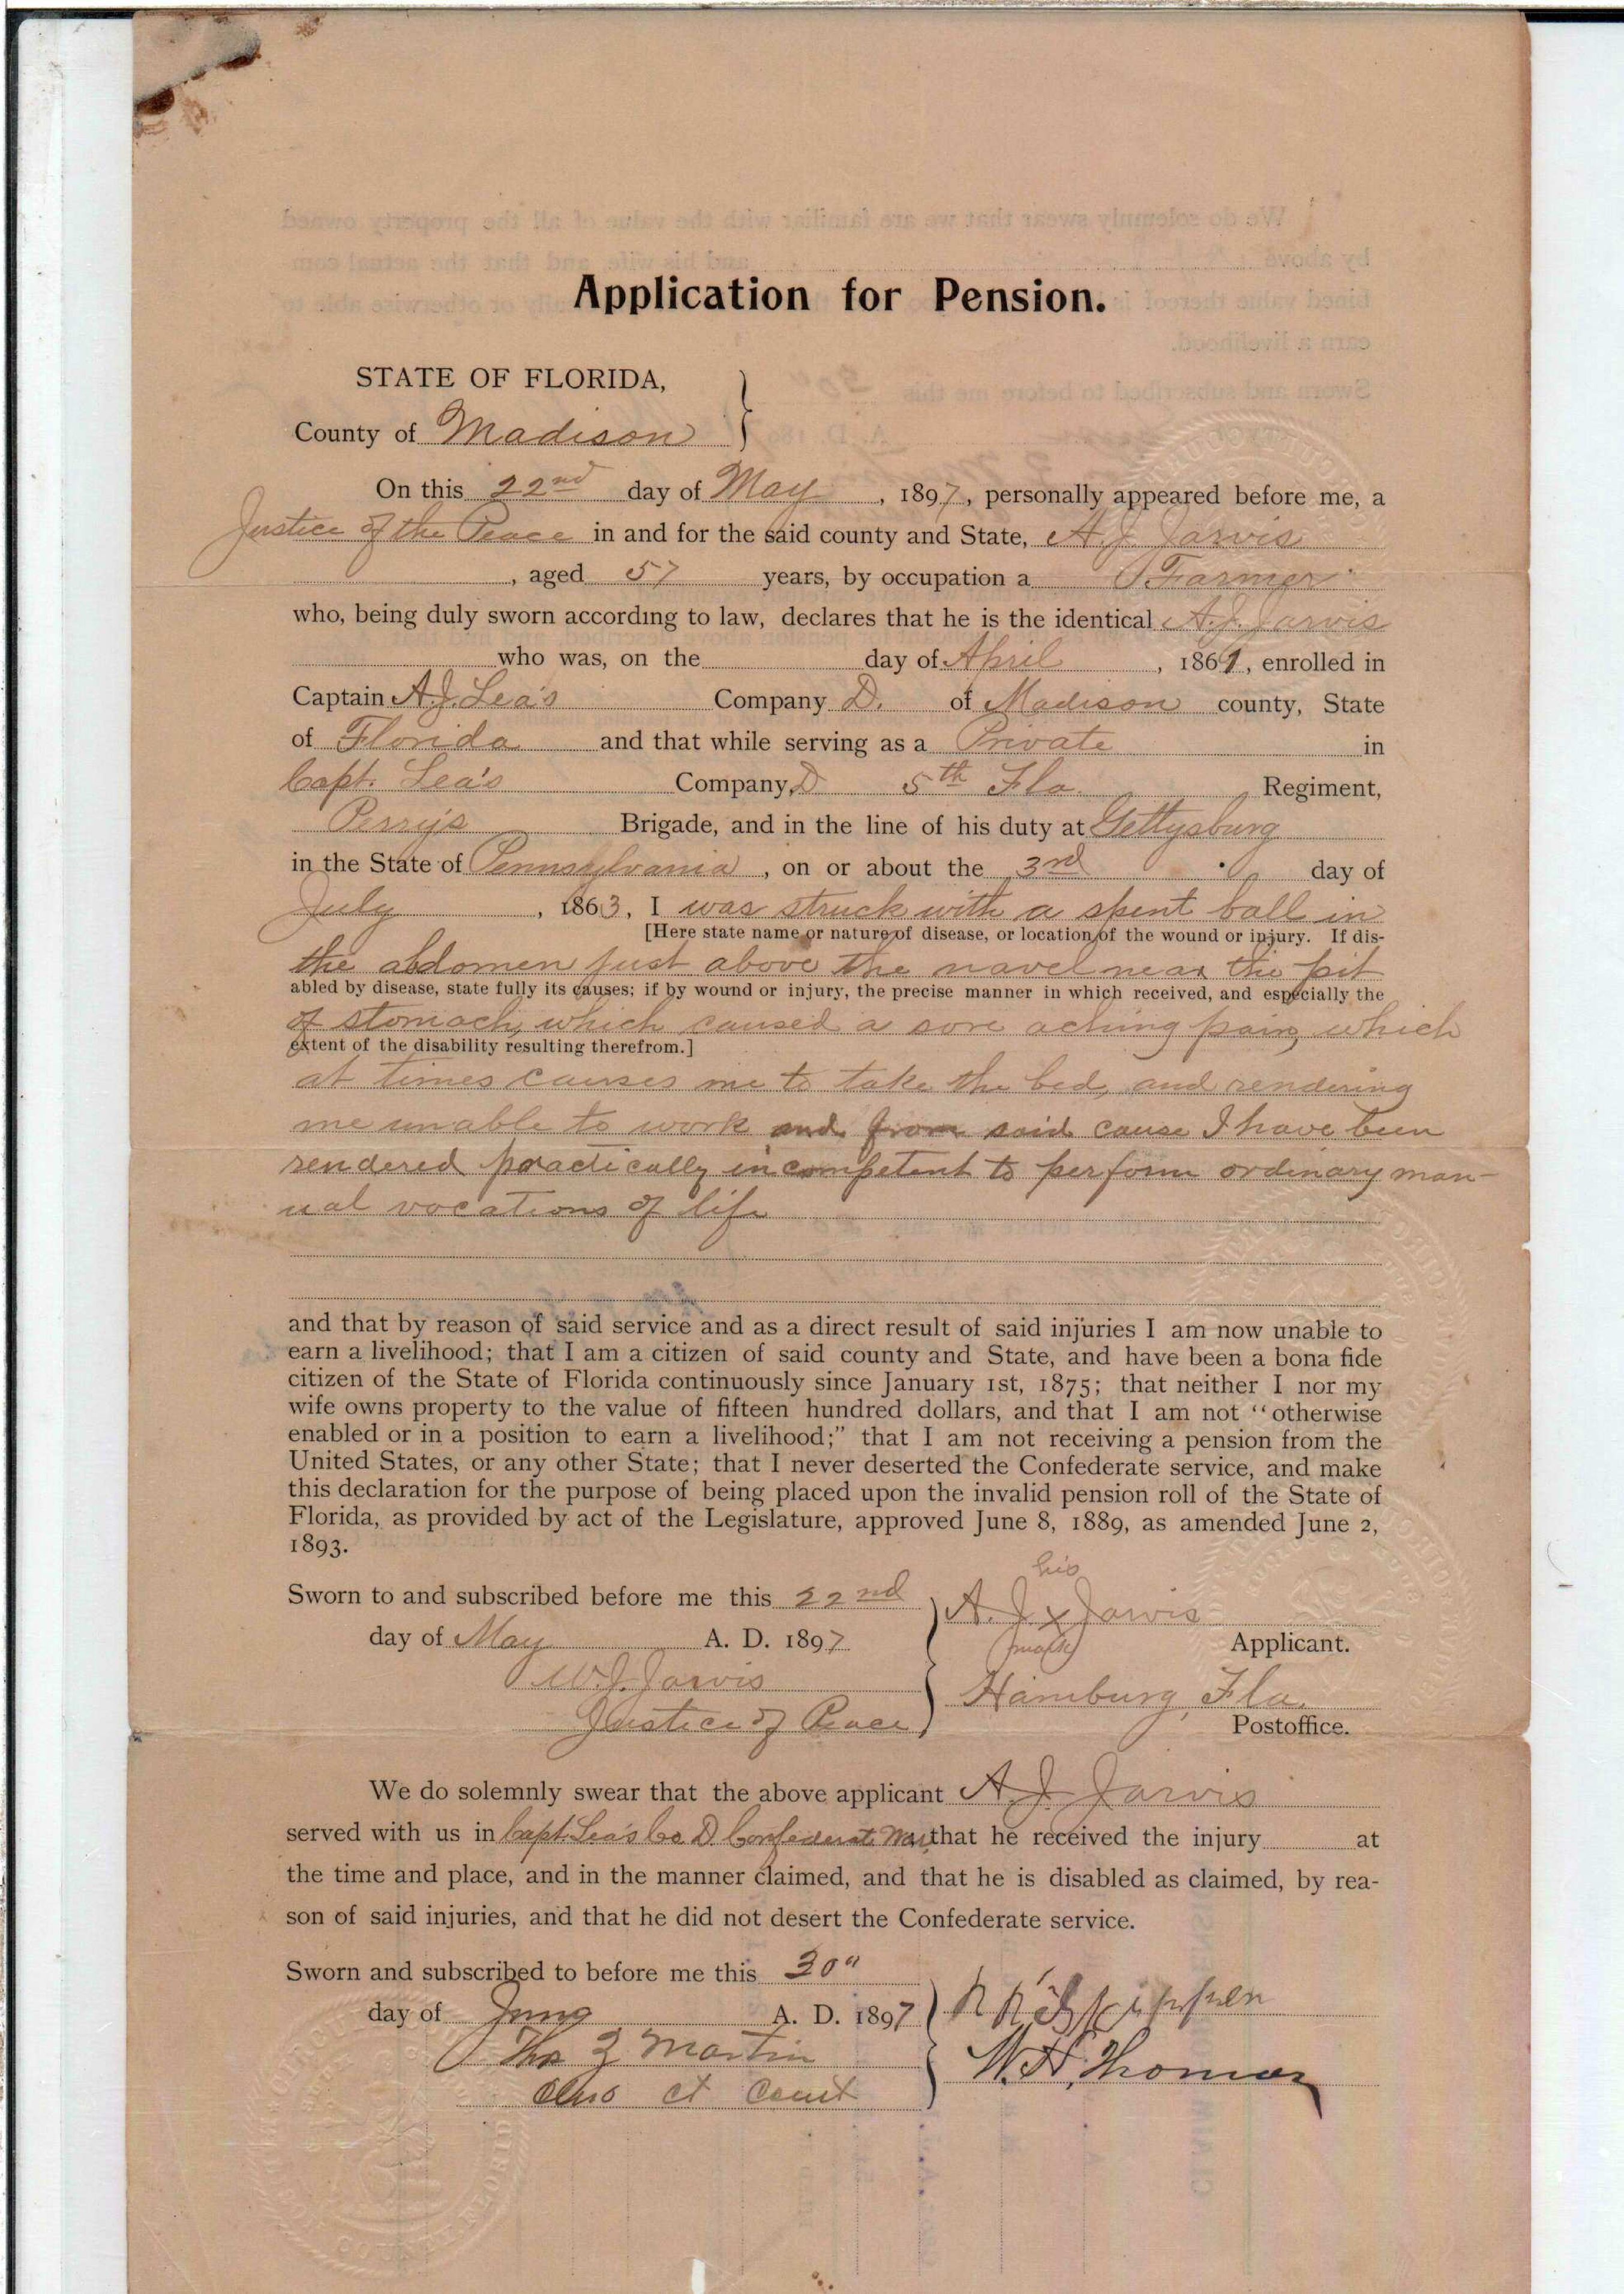 Application for Pension.
STATE OF FLORIDA,
County of Madison
On this 22nd day of May, 1897, personally appeared before me, a
Justice of the Peace in and for the said county and State, A. J. Jarvis
, aged 57 years, by occupation a Farmer
who, being duly sworn according to law, declares that he is the identical A. J. Jarvis
who was, on the day of April, 1861, enrolled in
Captain A. J. Lea's Company D. of Madison county, State
of Florida and that while serving as a Private in
Capt. Lea's Company, D 5th Fla. Regiment,
Perry's Brigade, and in the line of his duty at Gettysburg
in the State of Pennsylvania, on or about the 3rd day of
July, 1863, I was struck with a spent ball in
[Here state name or nature of disease, or location of the wound or injury. If dis-
the abdomen just above the navel near the pit
abled by disease, state fully its causes; if by wound or injury, the precise manner in which received, and especially the
of stomach, which caused a sore aching pain, which
extent of the disability resulting therefrom.]
at times causes me to take the bed, and rendering
me unable to work and from said cause I have been
rendered practically incompetent to perform ordinary man-
ual vocations of life
and that by reason of said service and as a direct result of said injuries I am now unable to
earn a livelihood; that I am a citizen of said county and State, and have been a bona fide
citizen of the State of Florida continuously since January 1st, 1875; that neither I nor my
wife owns property to the value of fifteen hundred dollars, and that I am not "otherwise
enabled or in a position to earn a livelihood;" that I am not receiving a pension from the
United States, or any other State; that I never deserted the Confederate service, and make
this declaration for the purpose of being placed upon the invalid pension roll of the State of
Florida, as provided by act of the Legislature, approved June 8, 1889, as amended June 2,
1893.
his
Sworn to and subscribed before me this 22nd A. J. x Jarvis
day of May A. D. 1897 (mark) Applicant.
W. J. Jarvis Hamburg, Fla.
Justice of Peace Postoffice.
We do solemnly swear that the above applicant A. J. Jarvis
served with us in Capt. Lea's Co. D Confederate War, that he received the injury at
the time and place, and in the manner claimed, and that he is disabled as claimed, by rea-
son of said injuries, and that he did not desert the Confederate service.
Sworn and subscribed to before me this 30"
day of June A. D. 1897
Martin W. H. Thomas
Ct Court